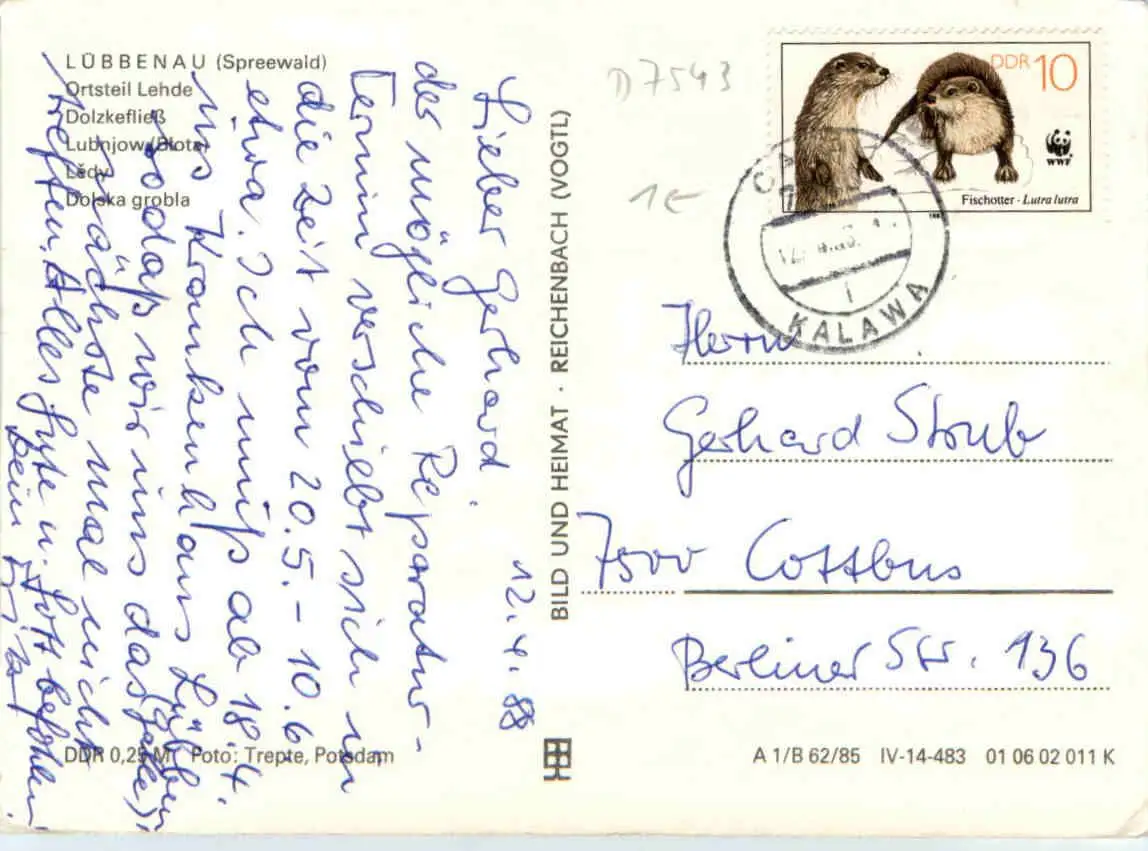 LÜBBENAU (Spreewald)
Ortsteil Lehde
Dolzkefließ
Lubnjow (Błota)
Lědy
Dolska grobla
D 7543
1€
DDR 10
WWF
Fischotter · Lutra lutra
KALAWA
12.4.88
Lieber Gerhard,
der mögliche Reparatur-
termin verschiebt sich in
die Zeit vom 20.5. - 10.6
etwa. Ich muß ab 18.4.
ins Krankenhaus Lübben,
sodaß wir uns das
nächste mal nicht
treffen. Alles Gute u. Gott befohlen!
Dein
BILD UND HEIMAT · REICHENBACH (VOGTL)
Herrn
Gerhard Strub
7500 Cottbus
Berliner Str. 136
DDR 0,25 M Foto: Trepte, Potsdam
A 1/B 62/85 IV-14-483 01 06 02 011 K